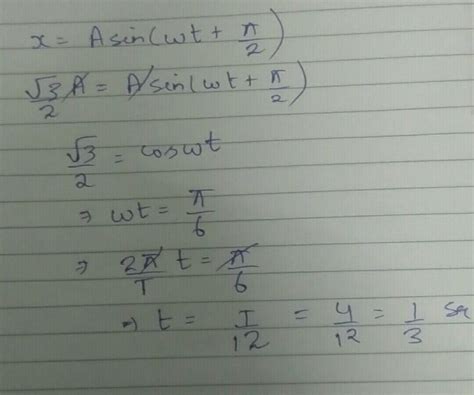 x = A sin(ωt + π/2)
√3/2 A = A sin(ωt + π/2)
√3/2 = cos ωt
⇒ ωt = π/6
⇒ 2π/T t = π/6
⇒ t = T/12 = 4/12 = 1/3